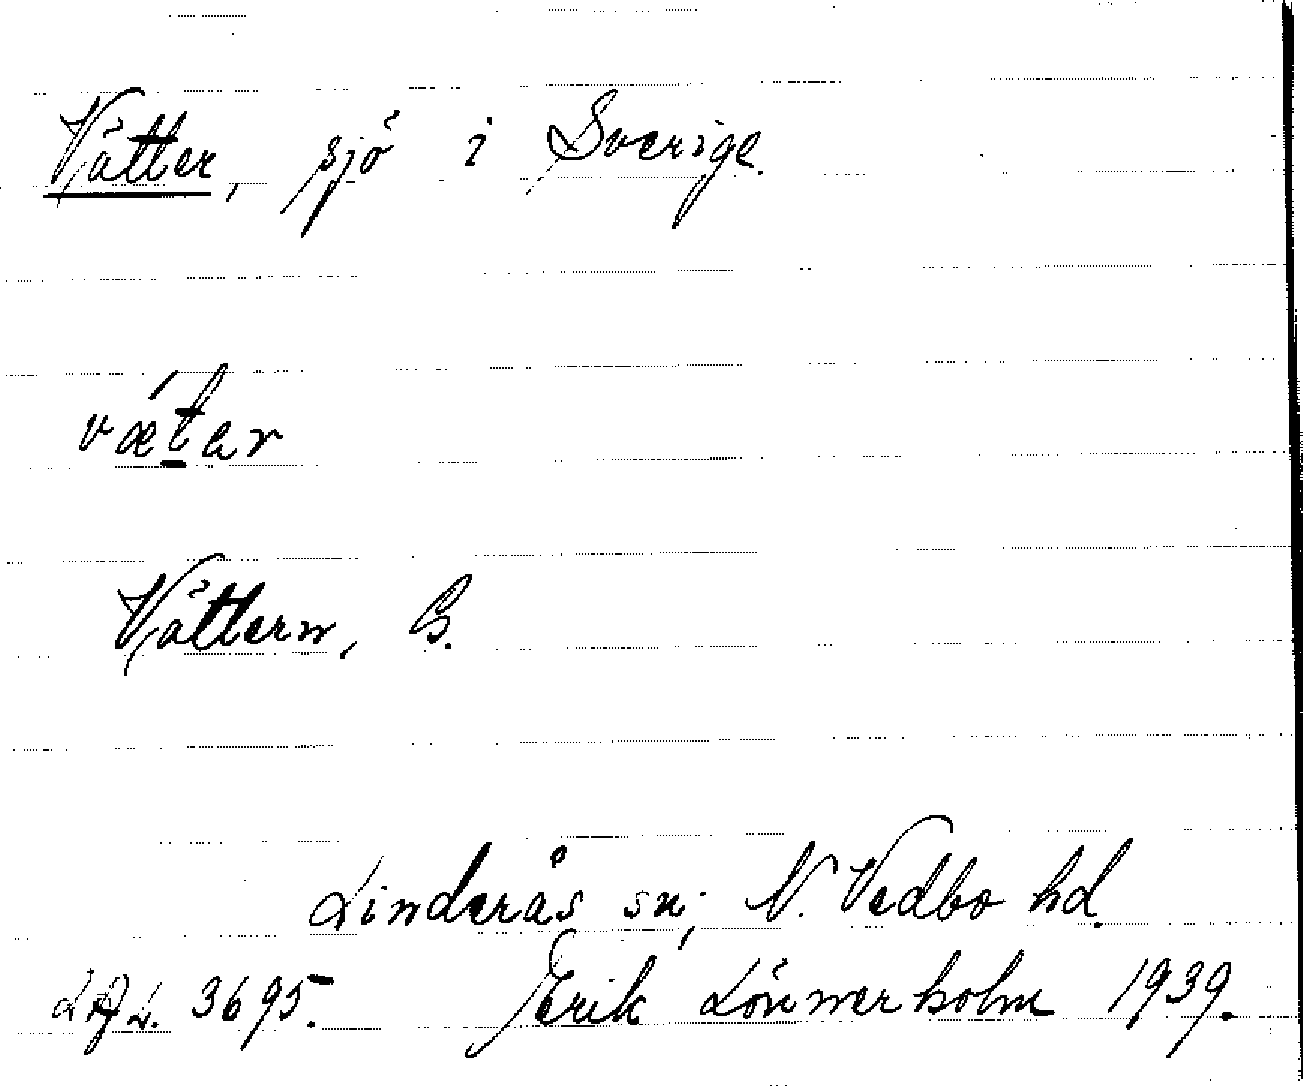 Vätter, sjö i Sverige.
vǽṯer
Vättern, G.
Linderås sn; N. Vedbo hd.
LAL. 3695. Erik Lönnerholm 1939.